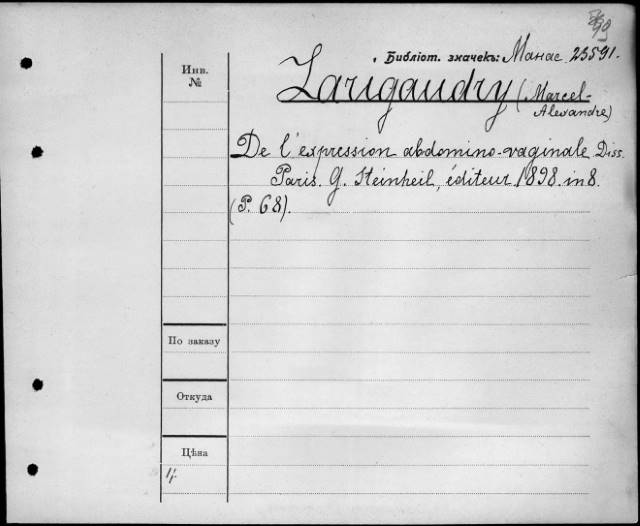 93
Инв. №
Библіот. значекъ: Манас 23591.
Larigaudry (Marcel-
Alexandre)
De l'expression abdomino-vaginale Diss.
Paris. G. Steinheil, éditeur 1898. in 8.
(P. 68).
По заказу
Откуда
Цѣна